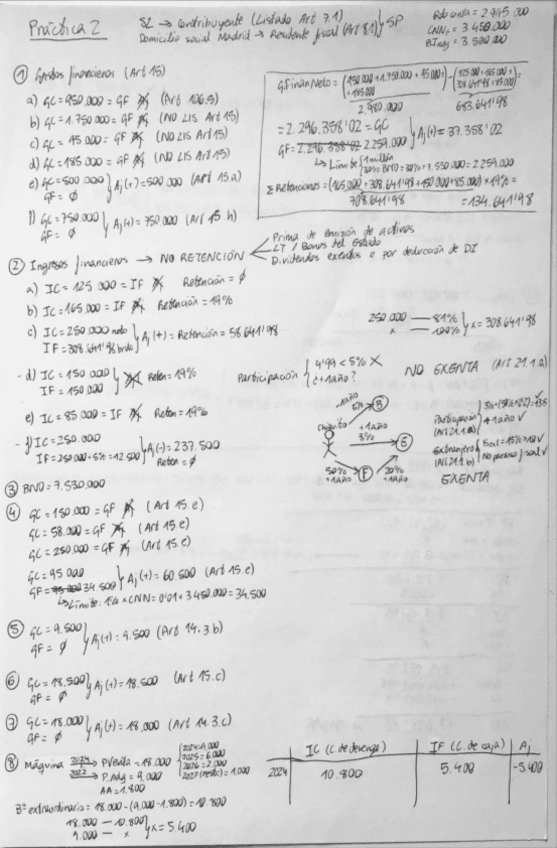 Práctica 2
SL → Contribuyente (Listado Art 7.1)
Domicilio social Madrid → Residente fiscal (Art 8.1) } SP
Rdo conta = 2.995.000
CNN = 3.450.000
3.500.000
① Gastos financieros (Art 15)
a) GC = 950.000 = GF (Art 106.5)
b) GC = 1.750.000 = GF (NO LIS Art 15)
c) GC = 95.000 = GF (NO LIS Art 15)
d) GC = 185.000 = GF (NO LIS Art 15)
e) GC = 500.000
GF = ∅ } Aj(+) = 500.000 (Art 15 a)
f) GC = 750.000
GF = ∅ } Aj(+) = 750.000 (Art 15 h)
GFinanNeto =
2.980.000
683.641'98
= 2.296.358'02 = GC
GF = 2.296.358'02 2.259.000 } Aj(+) = 37.358'02
↳ Límite { 1 millón
30% BNO = 30% × 7.530.000 = 2.259.000
Σ Retenciones = (165.000 + 308.641'98 + 150.000 + 85.000) × 19% =
708.641'98
= 134.641'98
② Ingresos financieros → NO RETENCIÓN
Prima de emisión de activos
LT / Bonos del Estado
Dividendos exentos o por deducción de DI
a) IC = 125.000 = IF Retención = ∅
b) IC = 165.000 = IF Retención = 19%
c) IC = 250.000 neto
IF = 308.641'98 bruto } Aj(+) = Retención = 58.641'98
250.000 — 81%
x — 100% } x = 308.641'98
- d) IC = 150.000
IF = 150.000 } Reten = 19%
Participación { 4'99 < 5% X
¿+1 año?
NO EXENTA (Art 21.1.a)
e) IC = 85.000 = IF Reten = 19%
- f) IC = 250.000
IF = 250.000 × 5% = 12.500 } Aj(-) = 237.500
Reten = ∅
+1 año
5%
B
+1 año
3%
E
50%
+1 año
F
20%
+1 año
Participación
(Art 21.1.a)
+1 año ✓
Extranjero
(Art 21.1.b)
EXENTA
③ BNO = 7.530.000
④ GC = 150.000 = GF (Art 15.e)
GC = 58.000 = GF (Art 15.e)
GC = 250.000 = GF (Art 15.e)
GC = 95.000
GF = 95.000 34.500 } Aj(+) = 60.500 (Art 15.e)
↳ Límite: 1% × CNN = 0'01 × 3.450.000 = 34.500
⑤ GC = 9.500
GF = ∅ } Aj(+) = 9.500 (Art 14.3 b)
⑥ GC = 18.500
GF = ∅ } Aj(+) = 18.500 (Art 15.c)
⑦ GC = 18.000
GF = ∅ } Aj(+) = 18.000 (Art 14.3.c)
⑧ Máquina 2024 → P Venta = 18.000
2022 → P. Adq = 9.000
AA = 1.800
2025 = 6.000
2026 = 2.000
2027 (resto) = 1.000
Bº extraordinario = 18.000 - (9.000 - 1.800) = 10.800
18.000 — 10.800
9.000 — x } x = 5.400
IC (C. de devengo) IF (C. de caja) Aj
2024 10.800 5.400 -5.400